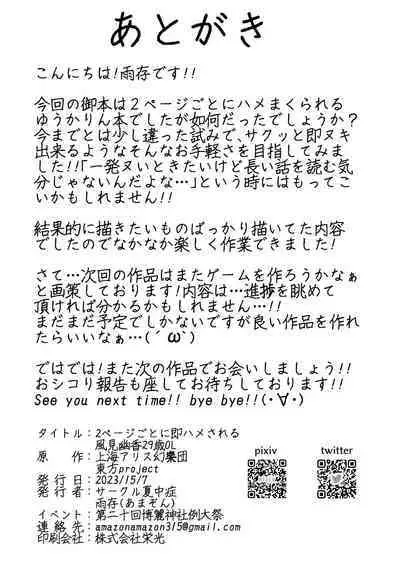 あとがき
こんにちは!雨存です!!
今回の御本は2ページごとにハメまくられる
ゆうかりん本でしたが如何だったでしょうか?
今までとは少し違った試みで、サクッと即ヌキ
出来るようなそんなお手軽さを目指してみま
した!!「一発ヌいときたいけど長い話を読む気
分じゃないんだよな…」という時にはもってこ
いかもしれません!!
結果的に描きたいものばっかり描いてた内容
でしたのでなかなか楽しく作業できました!
さて…次回の作品はまたゲームを作ろうかなぁ
と画策しております!内容は…進捗を眺めて
頂ければ分かるかもしれません…!!
まだまだ予定でしかないですが良い作品を作れ
たらいいなぁ…(´ω`)
ではでは!また次の作品でお会いしましょう!!
おシコり報告も座してお待ちしております!!
See you next time!! bye bye!!(・∀・)
タイトル:2ページごとに即ハメされる
風見幽香29歳OL
原 作:上海アリス幻樂団
東方project
発 行 日:2023/15/7
発 行 者:サークル夏中症
雨存(あまぞん)
イベント:第二十回博麗神社例大祭
連 絡 先:amazonamazon315@gmail.com
印刷会社:株式会社栄光
pixiv
twitter